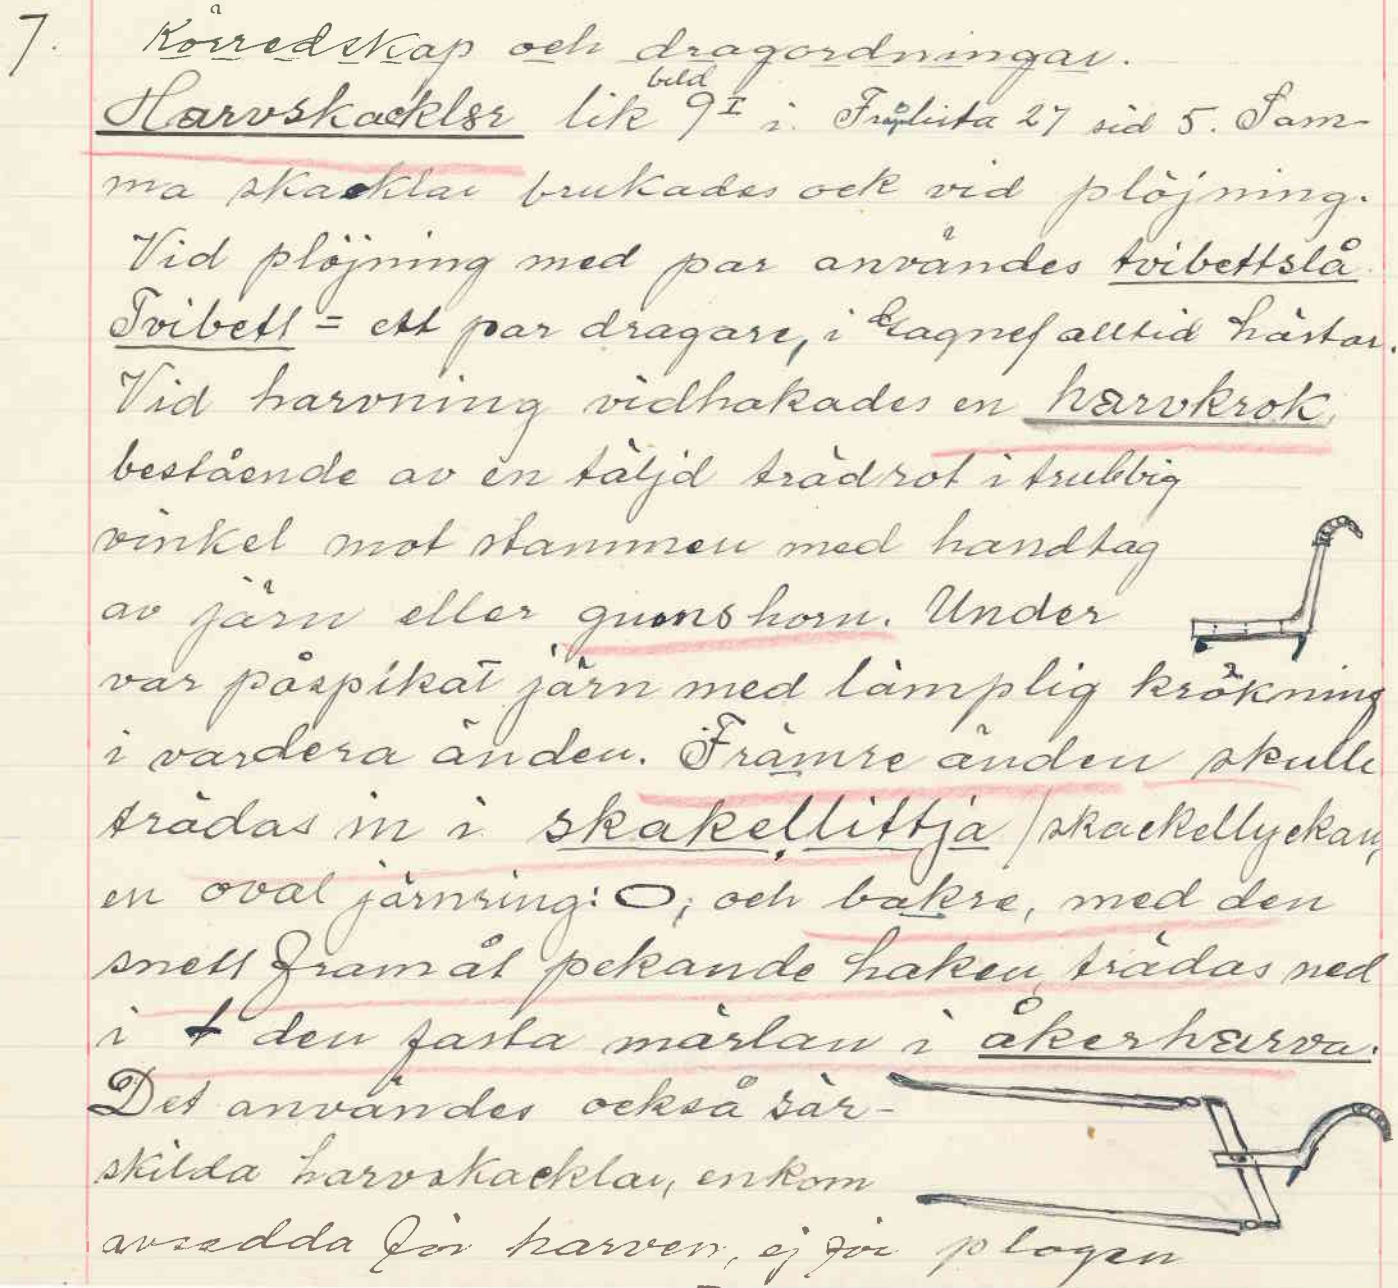 7. Körredskap och dragordningar.
Harvskacklar lik bild 9I i Frågelista 27 sid 5. Sam-
ma skacklar brukades ock vid plöjning.
Vid plöjning med par användes tvibettslå
Tvibett = ett par dragare, i Gagnef alltid hästar.
Vid harvning vidhakades en harvkrok,
bestående av en täljd trädrot i trubbig
vinkel mot stammen med handtag
av järn eller gumshorn. Under
var påspikat järn med lämplig krökning
i vardera änden. Främre änden skulle
trädas in i skakellittja /skackellyckan,
en oval järnring: O; och bakre, med den
snett framåt pekande haken, trädas ned
i den fasta märlan i åkerharva.
Det användes också sär-
skilda harvskacklar, enkom
avsedda för harven, ej för plogen